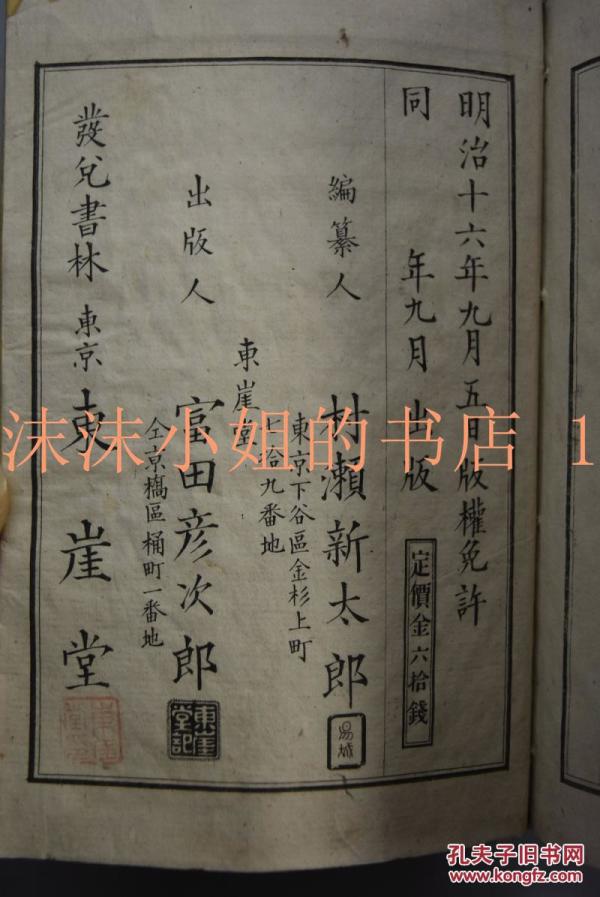 明治十六年九月五日版權免許
同年九月出版
定價金六拾錢
編纂人 村瀬新太郎
東京下谷區金杉上町
七拾九番地
東崖堂
出版人 富田彦次郎
仝京橋區桶町一番地
發兌書林 東京 東崖堂
東崖堂記
沫沫小姐的书店 1
孔夫子旧书网
www.kongfz.com